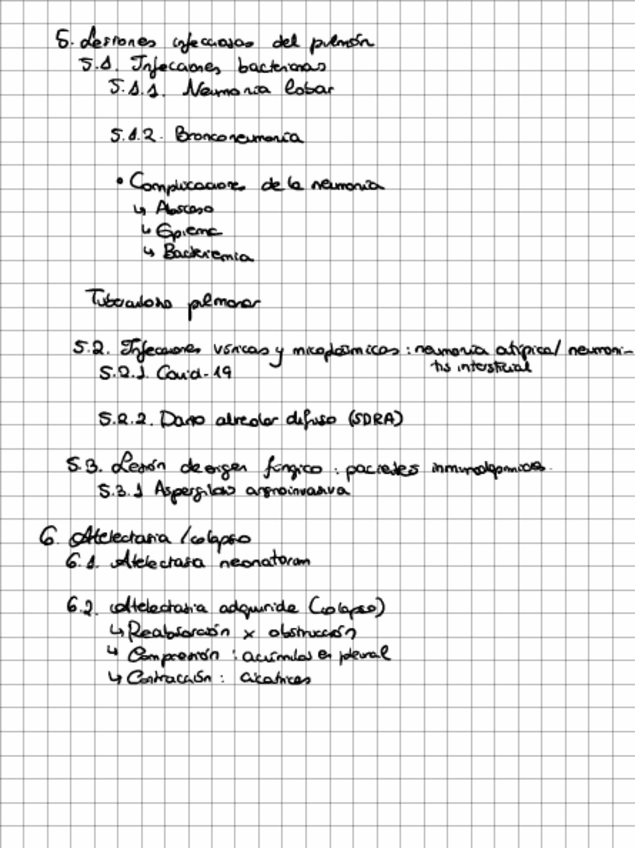 5. Lesiones infecciosas del pulmón
5.1. Infecciones bacterianas
5.1.1. Neumonía lobar
5.1.2. Bronconeumonía
• Complicaciones de la neumonía
↳ Absceso
↳ Epiema
↳ Bacteriemia
Tuberculosis pulmonar
5.2. Infecciones víricas y micoplásmicas : neumonía atípica/ neumoni-
tis intersticial
5.2.1. Covid-19
5.2.2. Daño alveolar difuso (SDRA)
5.3. Lesión de origen fúngico : pacientes inmunodeprimidos.
5.3.1 Aspergilosis angioinvasiva
6. Atelectasia /colapso
6.1. Atelectasia neonatorum
6.2. Atelectasia adquirida (colapso)
↳ Reabsorción x obstrucción
↳ Compresión : acúmulos en pleural
↳ Contracción : cicatrices